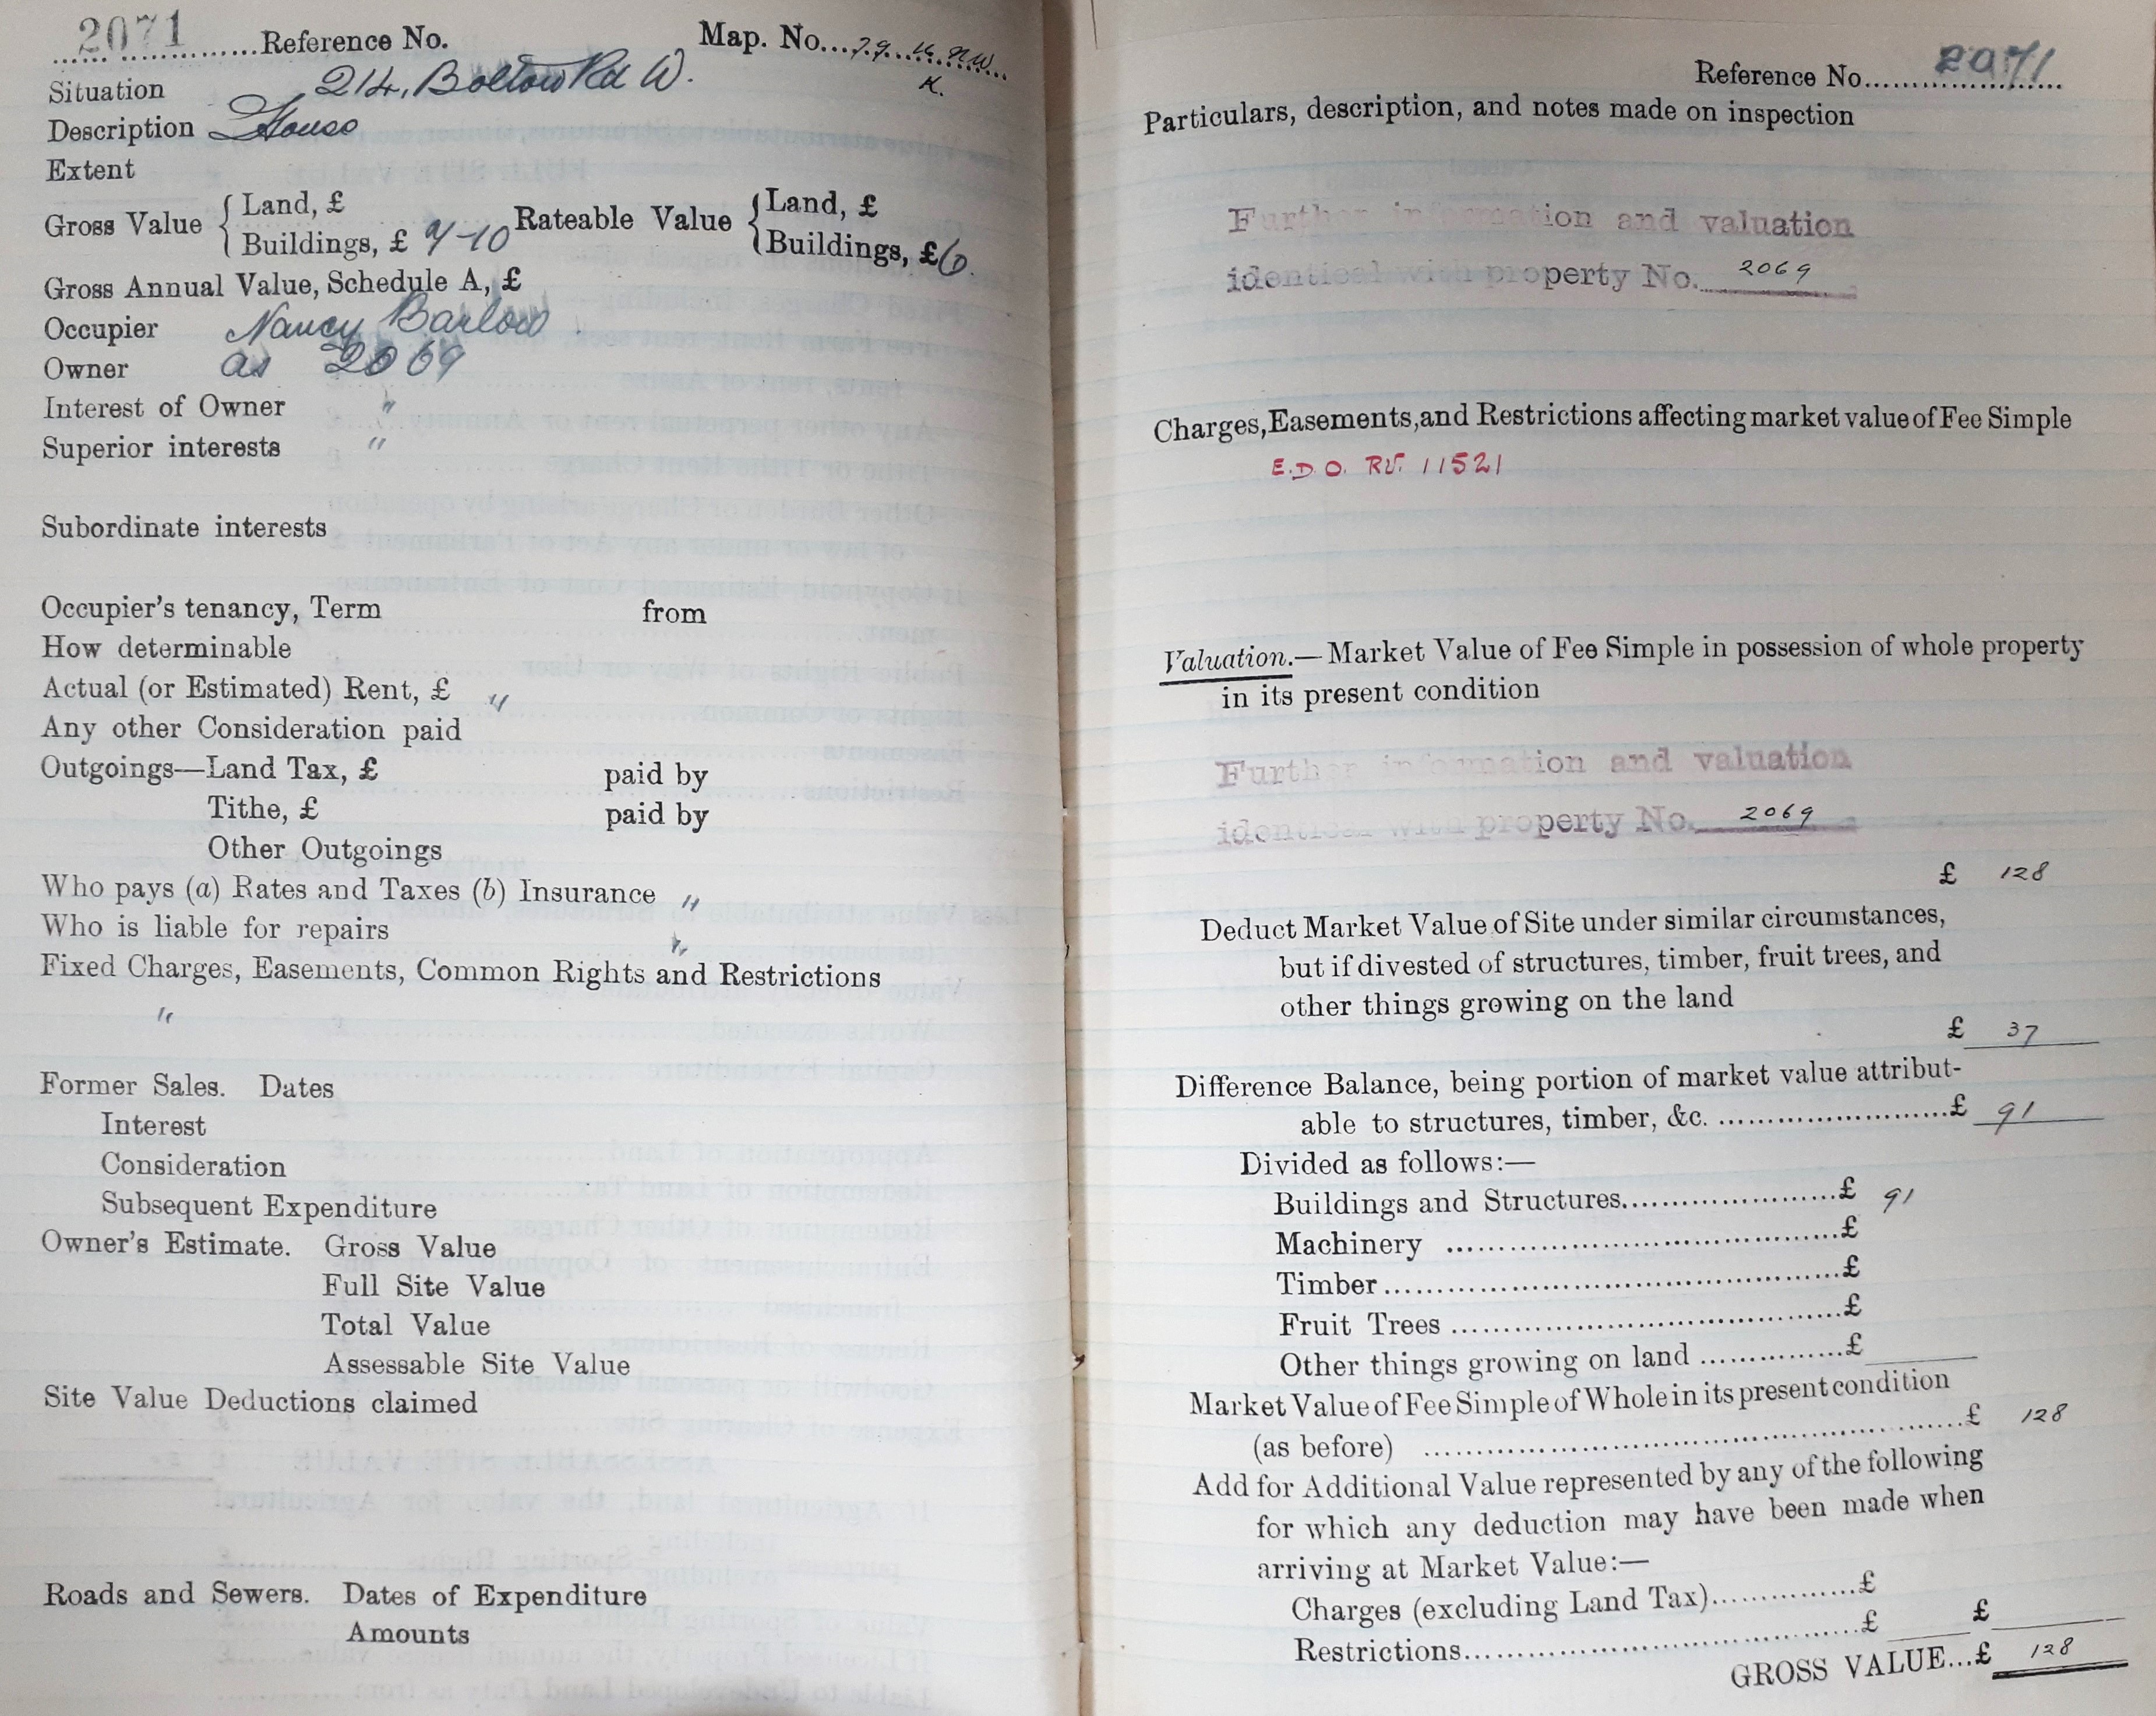 2071 Reference No. Map. No. 79. 14. N.W.
K.
Situation 214, Bolton Rd W.
Description House
Extent
Gross Value { Land, £ Rateable Value { Land, £
Buildings, £ 7-10 Buildings, £6.
Gross Annual Value, Schedule A, £
Occupier Nancy Barlow
Owner as 2069
Interest of Owner "
Superior interests "
Subordinate interests
Occupier's tenancy, Term from
How determinable
Actual (or Estimated) Rent, £ "
Any other Consideration paid
Outgoings—Land Tax, £ paid by
Tithe, £ paid by
Other Outgoings
Who pays (a) Rates and Taxes (b) Insurance "
Who is liable for repairs "
Fixed Charges, Easements, Common Rights and Restrictions
"
Former Sales. Dates
Interest
Consideration
Subsequent Expenditure
Owner's Estimate. Gross Value
Full Site Value
Total Value
Assessable Site Value
Site Value Deductions claimed
Roads and Sewers. Dates of Expenditure
Amounts
Reference No. 2071
Particulars, description, and notes made on inspection
Further information and valuation
identical with property No. 2069
Charges, Easements, and Restrictions affecting market value of Fee Simple
E.D.O. RV. 11521
Valuation.—Market Value of Fee Simple in possession of whole property
in its present condition
Further information and valuation
identical with property No. 2069
£ 128
Deduct Market Value of Site under similar circumstances,
but if divested of structures, timber, fruit trees, and
other things growing on the land
£ 37
Difference Balance, being portion of market value attribut-
able to structures, timber, &c. £ 91
Divided as follows:—
Buildings and Structures £ 91
Machinery £
Timber £
Fruit Trees £
Other things growing on land £
Market Value of Fee Simple of Whole in its present condition
(as before) £ 128
Add for Additional Value represented by any of the following
for which any deduction may have been made when
arriving at Market Value:—
Charges (excluding Land Tax) £
Restrictions £ £
GROSS VALUE...£ 128